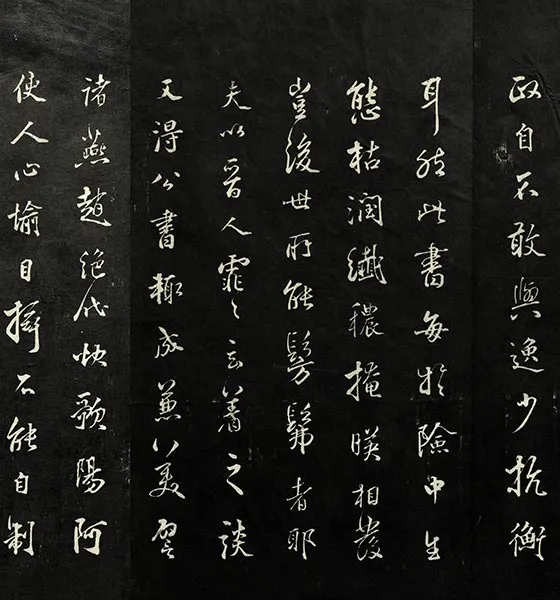 政自不敢與逸少抗衡
耳然此書每於險中生
態枯潤纖穠掩暎相發
豈後世所能髣髴者耶
夫以晉人霏〻玄著之談
又得公書輒成兼美譬
諸燕趙絕代快歌陽阿
使人心愉目不能自制